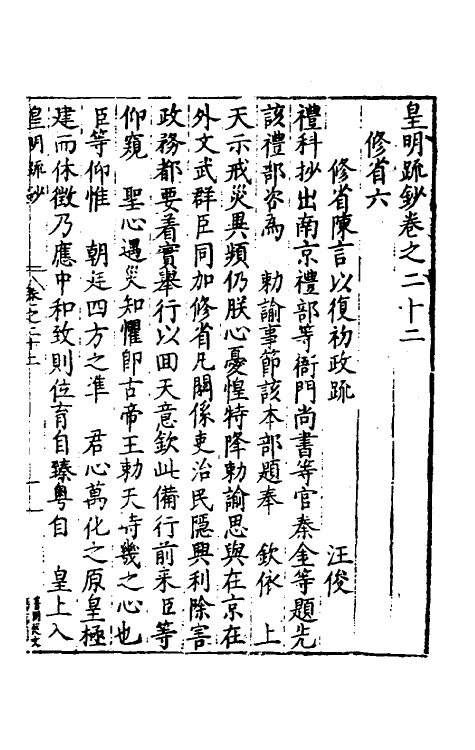 皇明疏鈔卷之二十二
修省六
修省陳言以復初政疏　汪俊
禮科抄出南京禮部等衙門尚書等官秦金等題先
該禮部咨為　勅諭事節該本部題奉　欽依　上
天示戒災異頻仍朕心憂惶特降勅諭思與在京在
外文武群臣同加修省凡關係吏治民隱興利除害
政務都要着實舉行以回天意欽此備行前來臣等
仰窺　聖心遇災知懼即古帝王勅天時幾之心也
臣等仰惟　朝廷四方之準　君心萬化之原皇極
建而休徵乃應中和致則位育自臻粵自　皇上入
皇明疏鈔　卷之二十二　一